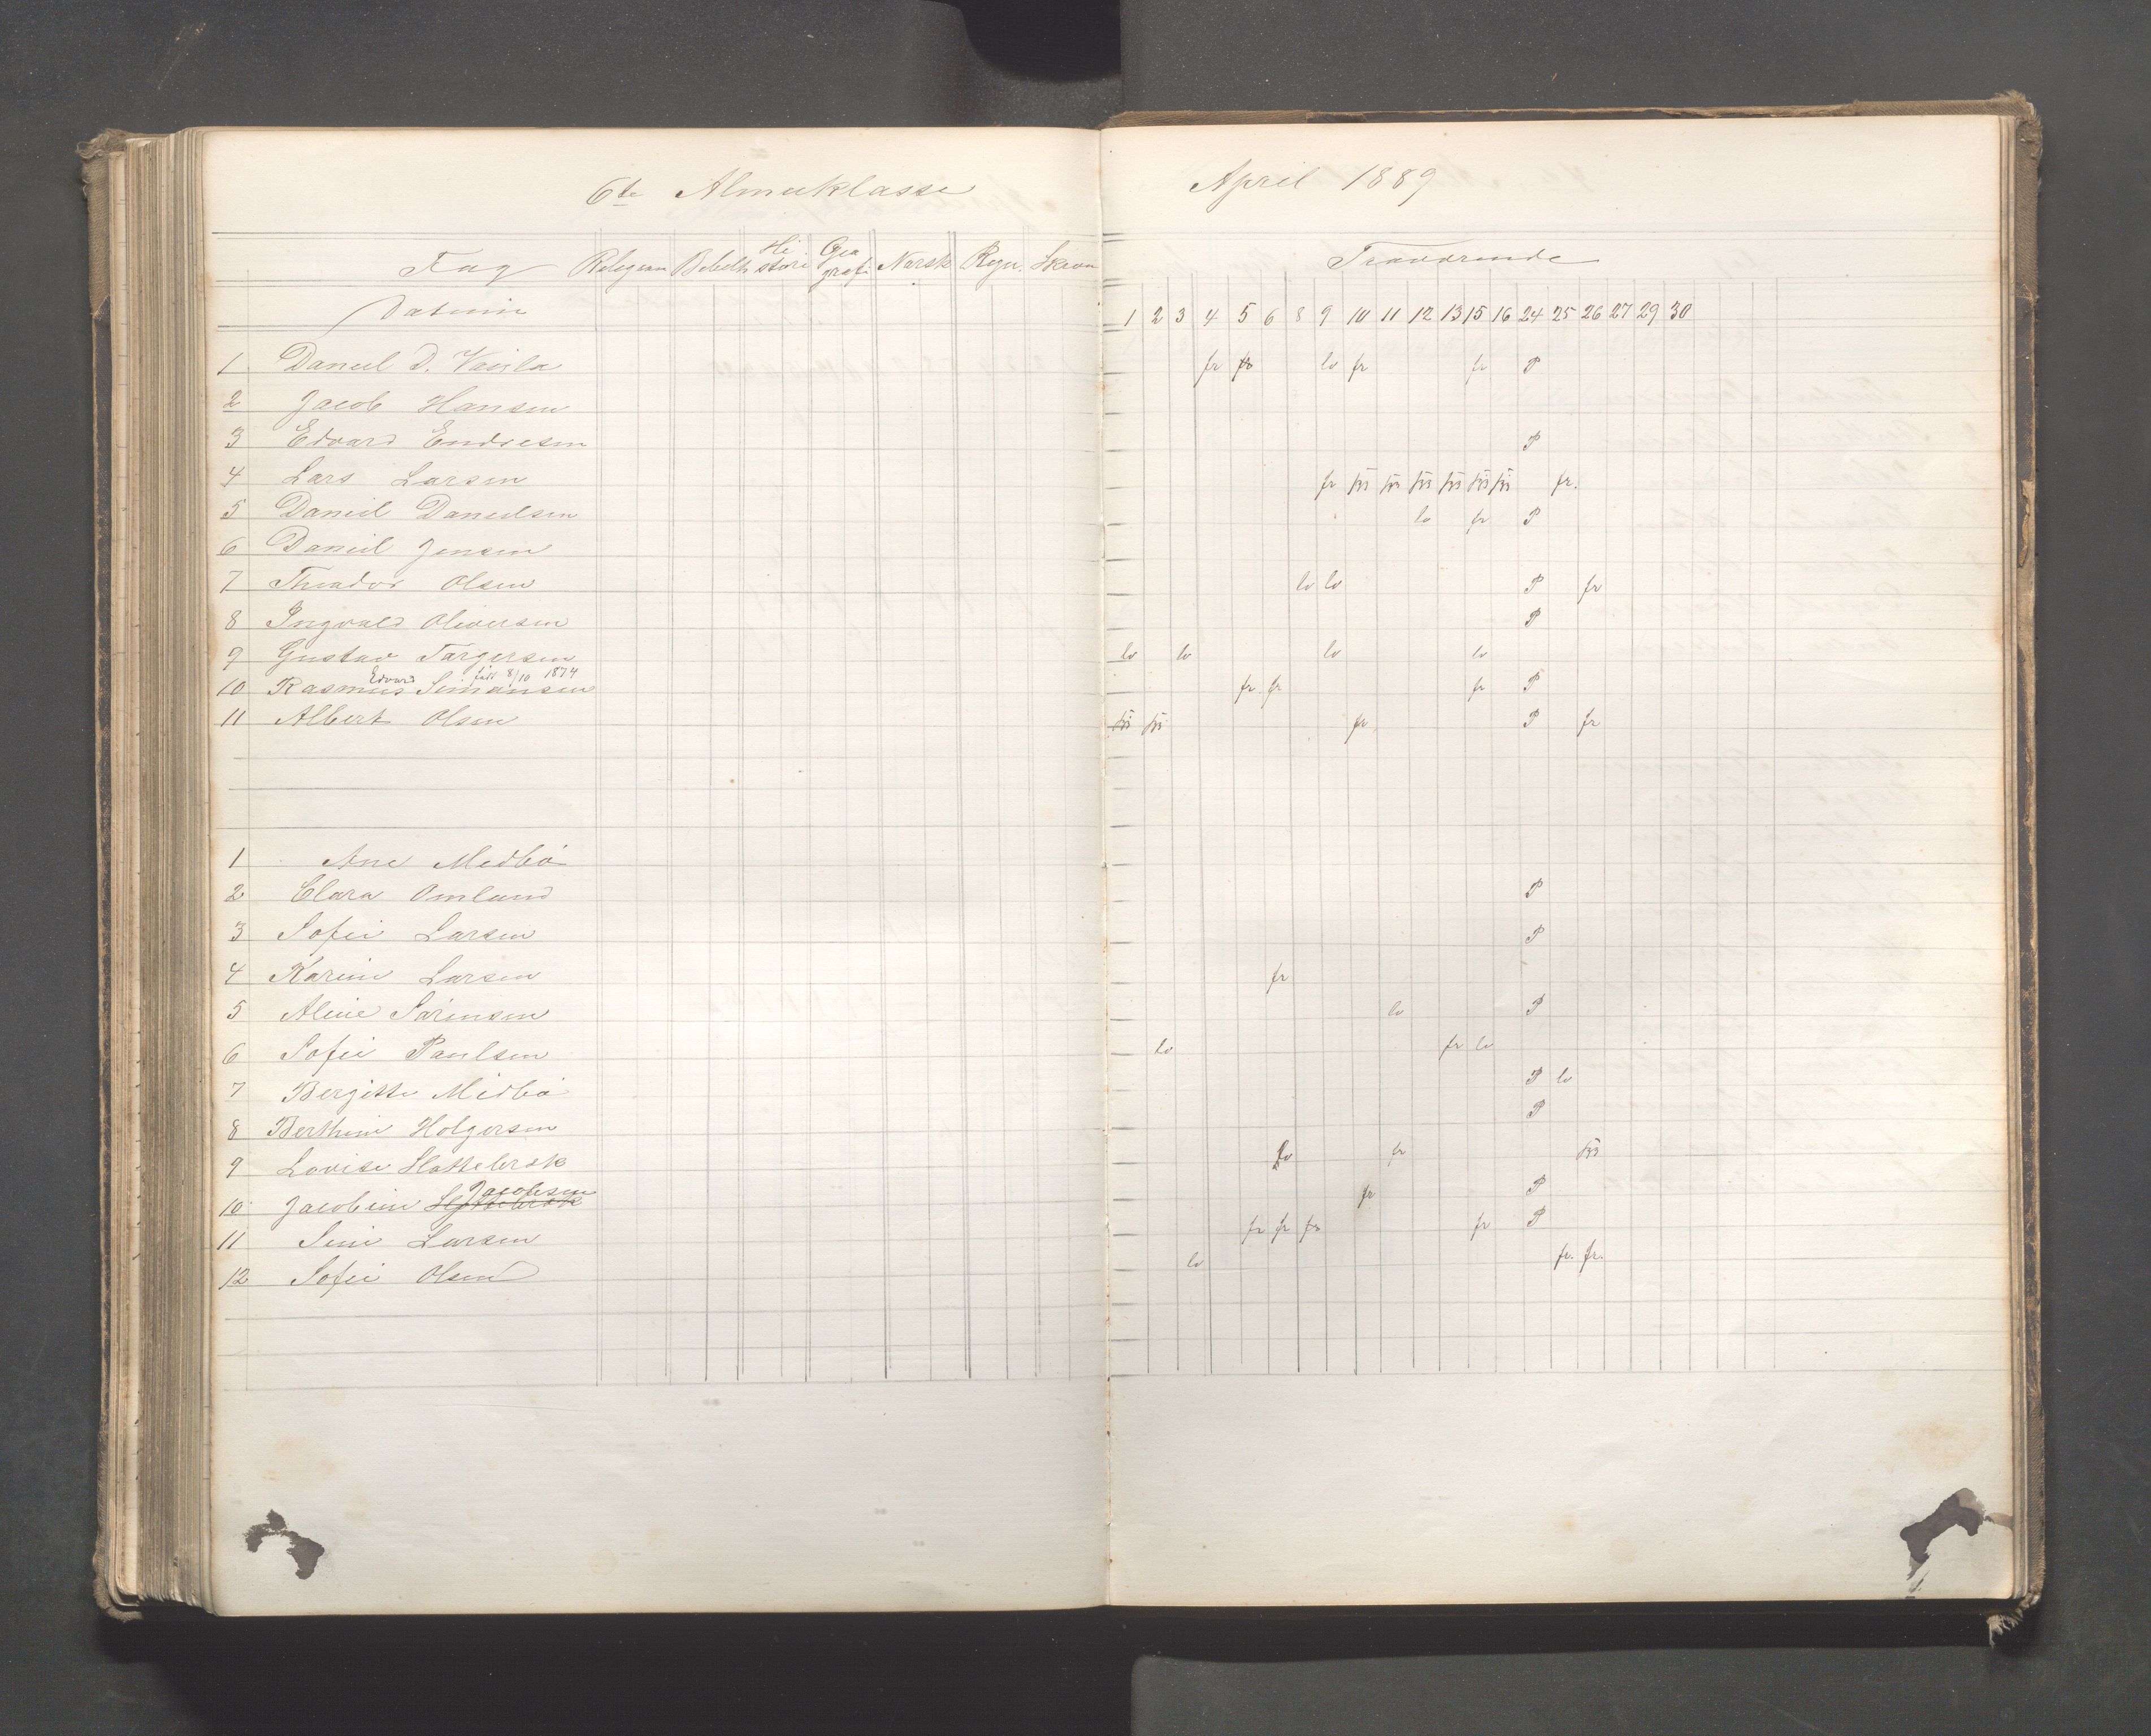 6te Almueklasse
April 1889
Fag Religion Bibelh. Hi storie Geo grafi Norsk Regn. Skrivn
Fraværende
Datum
1 2 3 4 5 6 8 9 10 11 12 13 15 16 24 25 26 27 29 30
1 Daniel D. Varsla fr fr lo fr fr P
2 Jacob Hansen
3 Edvard Endresen P
4 Lars Larsen fr fr.
5 Daniel Danielsen lo fr P
6 Daniel Jensen
7 Theodor Olsen lo lo P fr
8 Ingvald Oliversen P
9 Gustav Torgersen lo lo lo lo
Edvard født 8/10 1874
10 Rasmus Simonsen fr fr fr P
11 Albert Olsen fr P fr
1 Ane Medbö
2 Clara Omlund P
3 Sofie Larsen P
4 Karine Larsen fr
5 Aline Sörensen lo P
6 Sofie Paulsen lo fr lo
7 Bergitte Medbö P lo
8 Berthine Holgersen P
9 Lovise Slottebrok lo fr
Jacobsen
10 Jacobine Slottebrok fr P
11 Sine Larsen fr fr fr fr P
12 Sofie Olsen lo fr. fr.